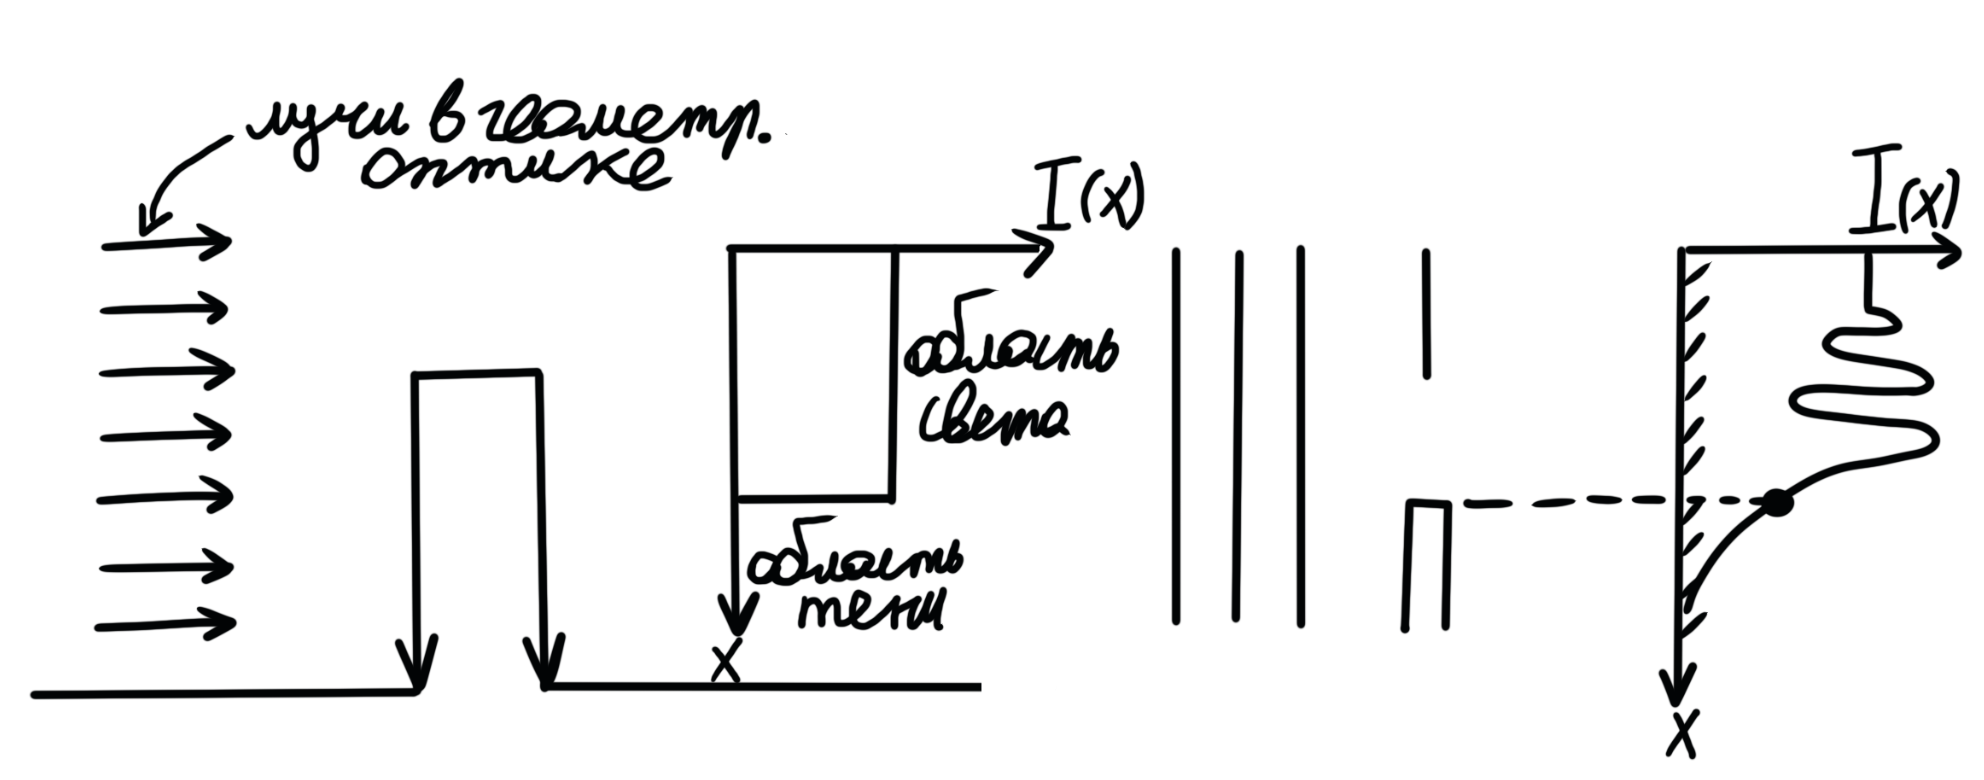 лучи в геометр.
оптике
I(x)
область
света
область
тени
x
I(x)
x